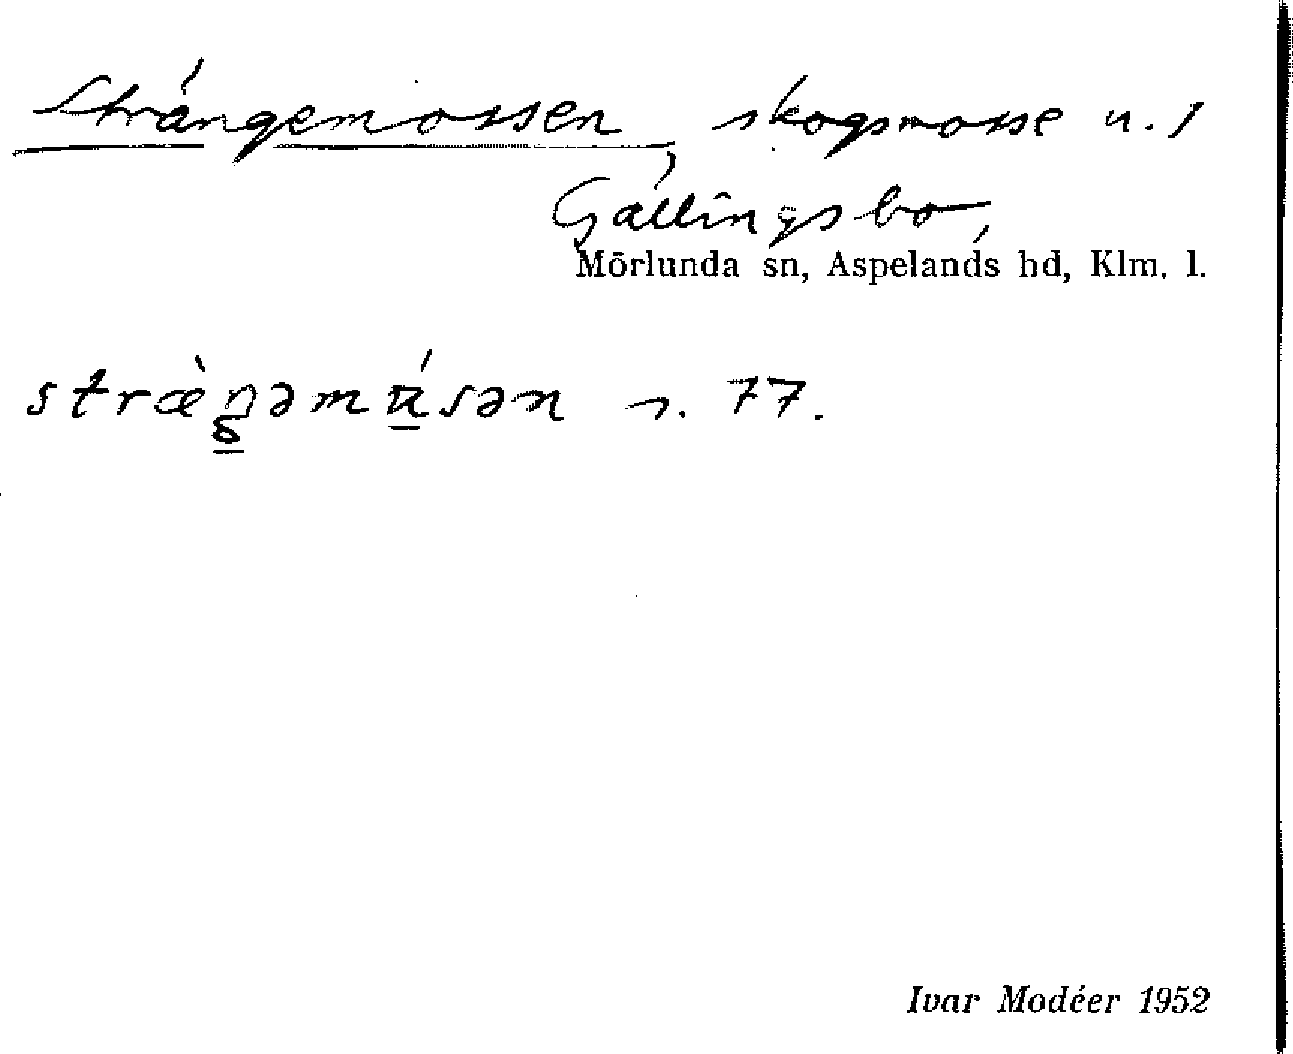 Strängemossen, skogsmosse u. /
Gällingsbo,
Mörlunda sn, Aspelands hd, Klm. l.
stræ̀ŋəmú̱sən s. 77.
Ivar Modéer 1952